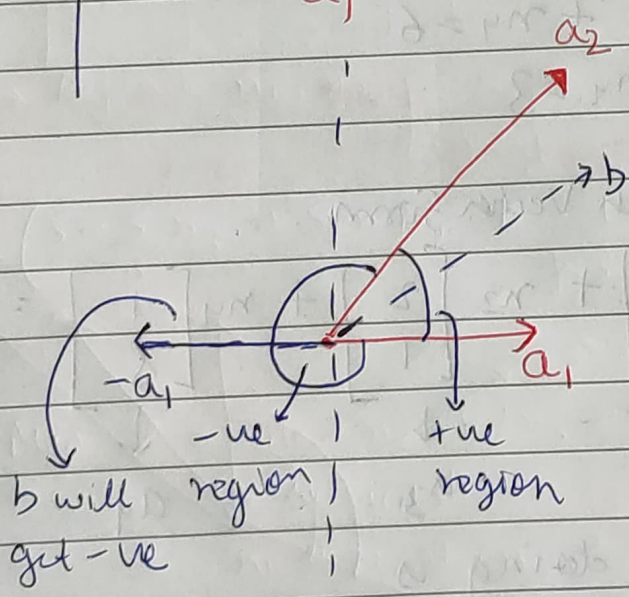 a₁
a₂
b
-a₁
a₁
-ve
region
+ve
region
b will
get -ve